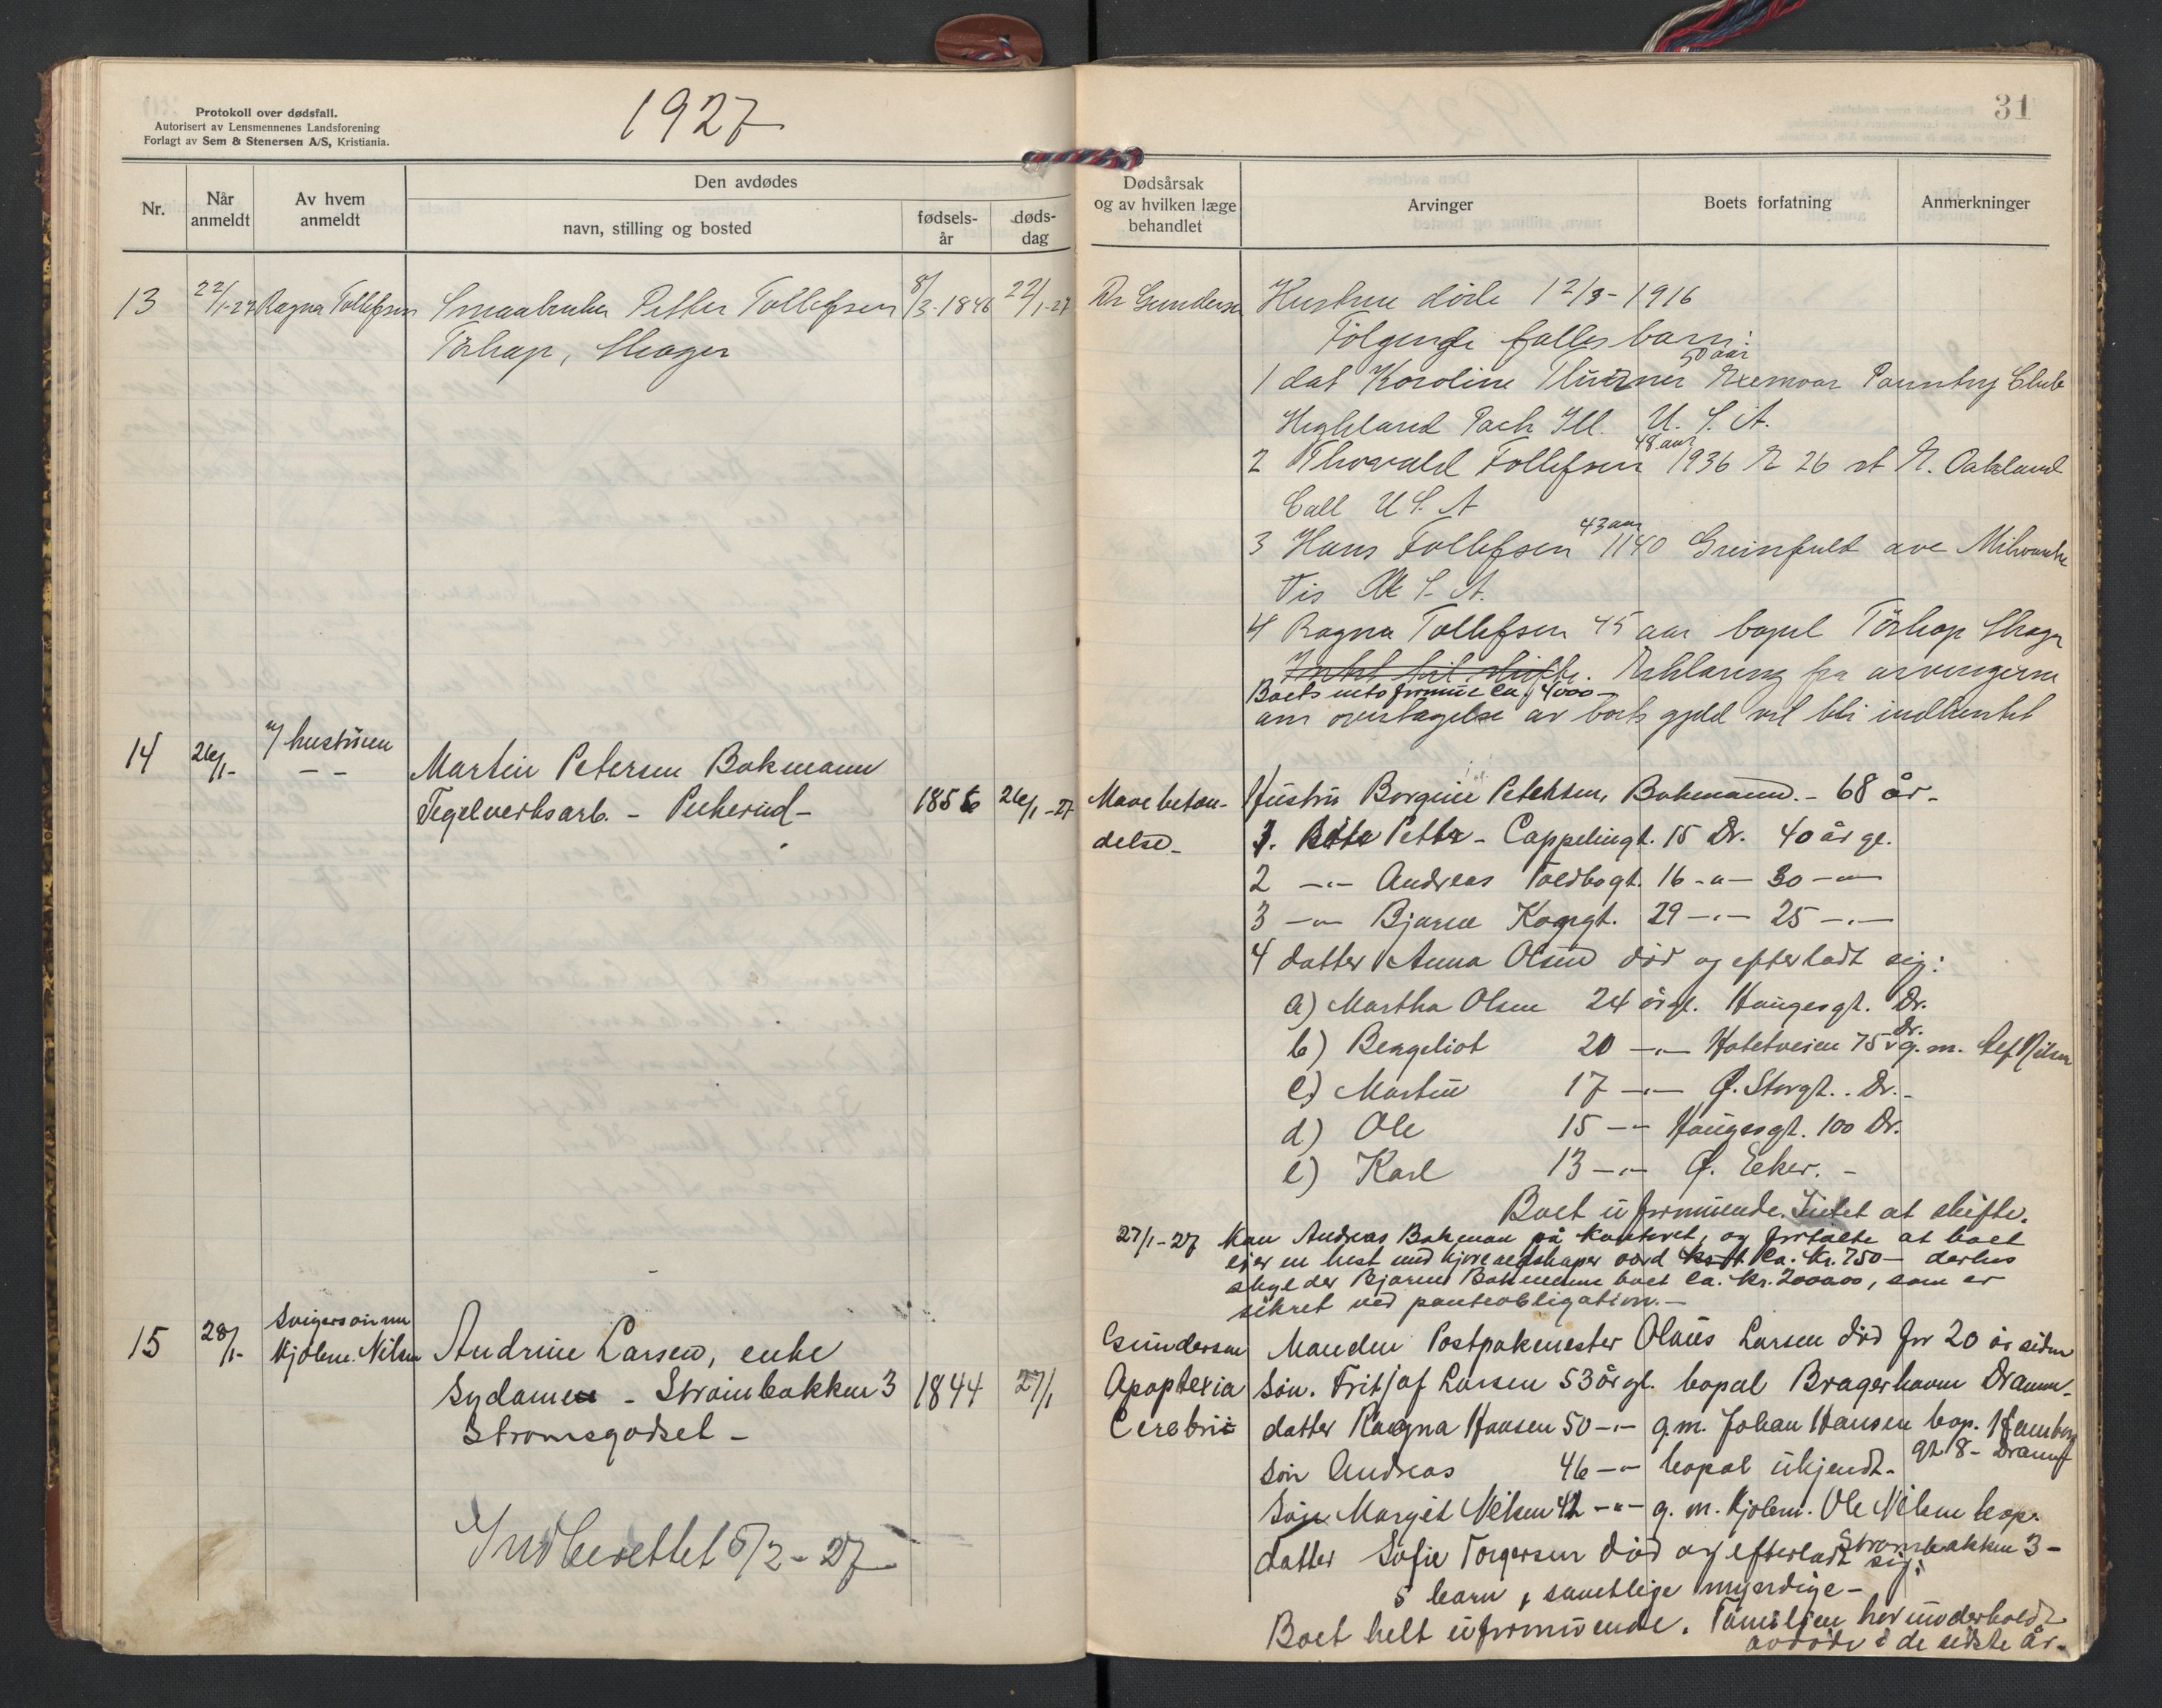 Protokoll over dødsfall.
Autorisert av Lensmennenes Landsforening
Forlagt av Sem & Stenersen A/S, Kristiania.
1927
Nr.
Når anmeldt
Av hvem anmeldt
Den avdødes
navn, stilling og bosted
fødsels-
år
døds-
dag
13 22/1-27 Ragna Tollefsen Smaabruker Petter Tollefsen 8/3-1846 22/1-27
Törkop, Skoger
14 26/1- v/ hustruen
Martin Petersen Bakmann
Tegelverksarb. - Pukerud- 1856 26/1-27
15 28/1- Svigersønnen
Kjølem. Nilsen Andrine Larsen, enke
Sydamen - Strømbakken 3 1844 27/1
Strømsgodset -
Indberettet 5/2-27
31
Dødsårsak
og av hvilken læge
behandlet
Arvinger
Boets forfatning
Anmerkninger
Dr Gundersen Hustru døde 12/3-1916
Følgende felles barn:
50 aar
1 dat Karoline Exemoor Country Club
Highland Park Ill. U. S. A.
48 aar
2 Thorvald Tollefsen 1936 E 26 st E. Oakland
Call U S. A
43 aar
3 Hans Tollefsen 1140 Greinfuld ave Milwauke
Vis U S. A.
4 Ragna Tollefsen 45 aar bopel Törkop Skoger
Intet til skifte. Erklæring fra arvingerne
Boets netoformue ca. 4000-
om overtagelse av boets gjeld vil bli indhentet
Mavebetæn-
delse-
Hustru Borgine Petersen, Bakmann.- 68 år-
1. Petter - Cappelingt. 15 Dr. 40 år gl.
2 -"- Andreas Toldbogt. 16 -"- 30 -"-
3 -"- Bjarne Kongt. 29 -"- 25 -"-
4 datter Anna Olsen død og efterladt sig:
a) Martha Olsen 24 år gl. Haugesgt. Dr.
b) Bergliot 20 -"- Hotvetveien 75 Dr. g.m. Alf Nilsen
c) Martin 17 -"- Ø. Storgt.. Dr.-
d) Ole 15 -"- Haugesgt. 100 Dr.
e) Karl 13 -"- Ø. Eeker. -
Boet uformuende. Intet at skifte.
27/1-27 Kom Andreas Bakman på kontoret, og fortalte at boet
eier en hest med kjøreredskaper værd ca. kr. 750- derhos
skylder Bjarne Bakmann boet ca. kr. 2000oo, som er
sikret ved panteobligation.-
Gundersen
Apoplexia
Cerebrii
Manden Postpakmester Olaus Larsen død for 20 år siden
Søn. Fritjof Larsen 53 år gl. bopæl Bragerhavn Dramm.
datter Ragna Hansen 50 -"- g.m. Johan Hansen bop. Hamborg
gt 8- Dramm
Søn Andreas 46 -"- bopæl ukjendt.
Søn Margit Nilsen 42 -"- g. m. Kjølem. Ole Nilsen bop.
Strømbakken 3-
datter Sofie Torgersen død og efterladt sig:
5 barn, samtlige myndige-
Boet helt uformuende. Familien har underholdt
avdøde i de sidste år.